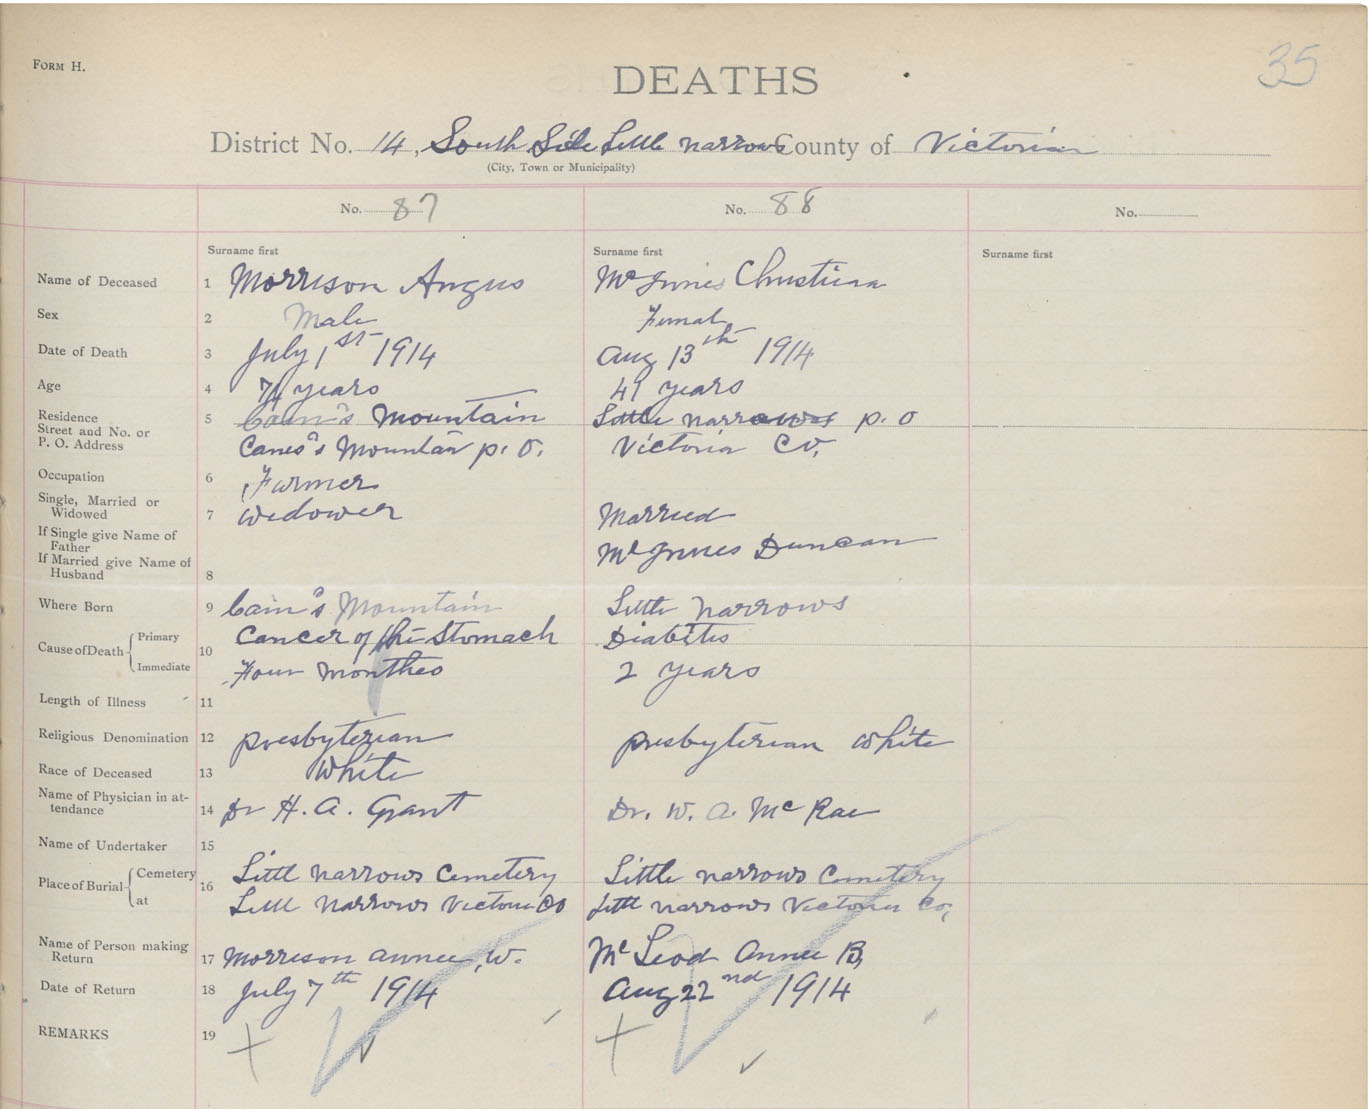 FORM H.
35
DEATHS
District No. 14, South Side Little narrows County of Victoria
(City, Town or Municipality)
No. 87
No. 88
No.
Surname first
Surname first
Surname first
Name of Deceased 1 Morrison Angus McInnis Christiena
Sex 2 Male Femal
Date of Death 3 July 1st 1914 Aug 13th 1914
Age 4 years 41 years
Residence 5 Cain's Mountain Little narrows p. o
Street and No. or
P. O. Address Canes's Mountain p. O. Victoria Co,
Occupation 6 Farmer
Single, Married or
Widowed 7 widower Married
If Single give Name of
Father McInnes Duncan
If Married give Name of
Husband 8
Where Born 9 Cain's Mountain Little narrows
Cause of Death { Primary 10 Cancer of the Stomach Diabetis
Immediate Four monthes 2 years
Length of Illness 11
Religious Denomination 12 presbyterian presbyterian white
Race of Deceased 13 White
Name of Physician in at-
tendance 14 Dr H. A. Grant Dr. W. A. McRae
Name of Undertaker 15
Place of Burial { Cemetery 16 Littl narrows Cemetery Little narrows Cemetery
at Littl narrows Victoria Co Littl narrows Victoria Co,
Name of Person making
Return 17 Morrison annie, W. McLeod Annie B,
Date of Return 18 July 7th 1914 Aug 22nd 1914
REMARKS 19